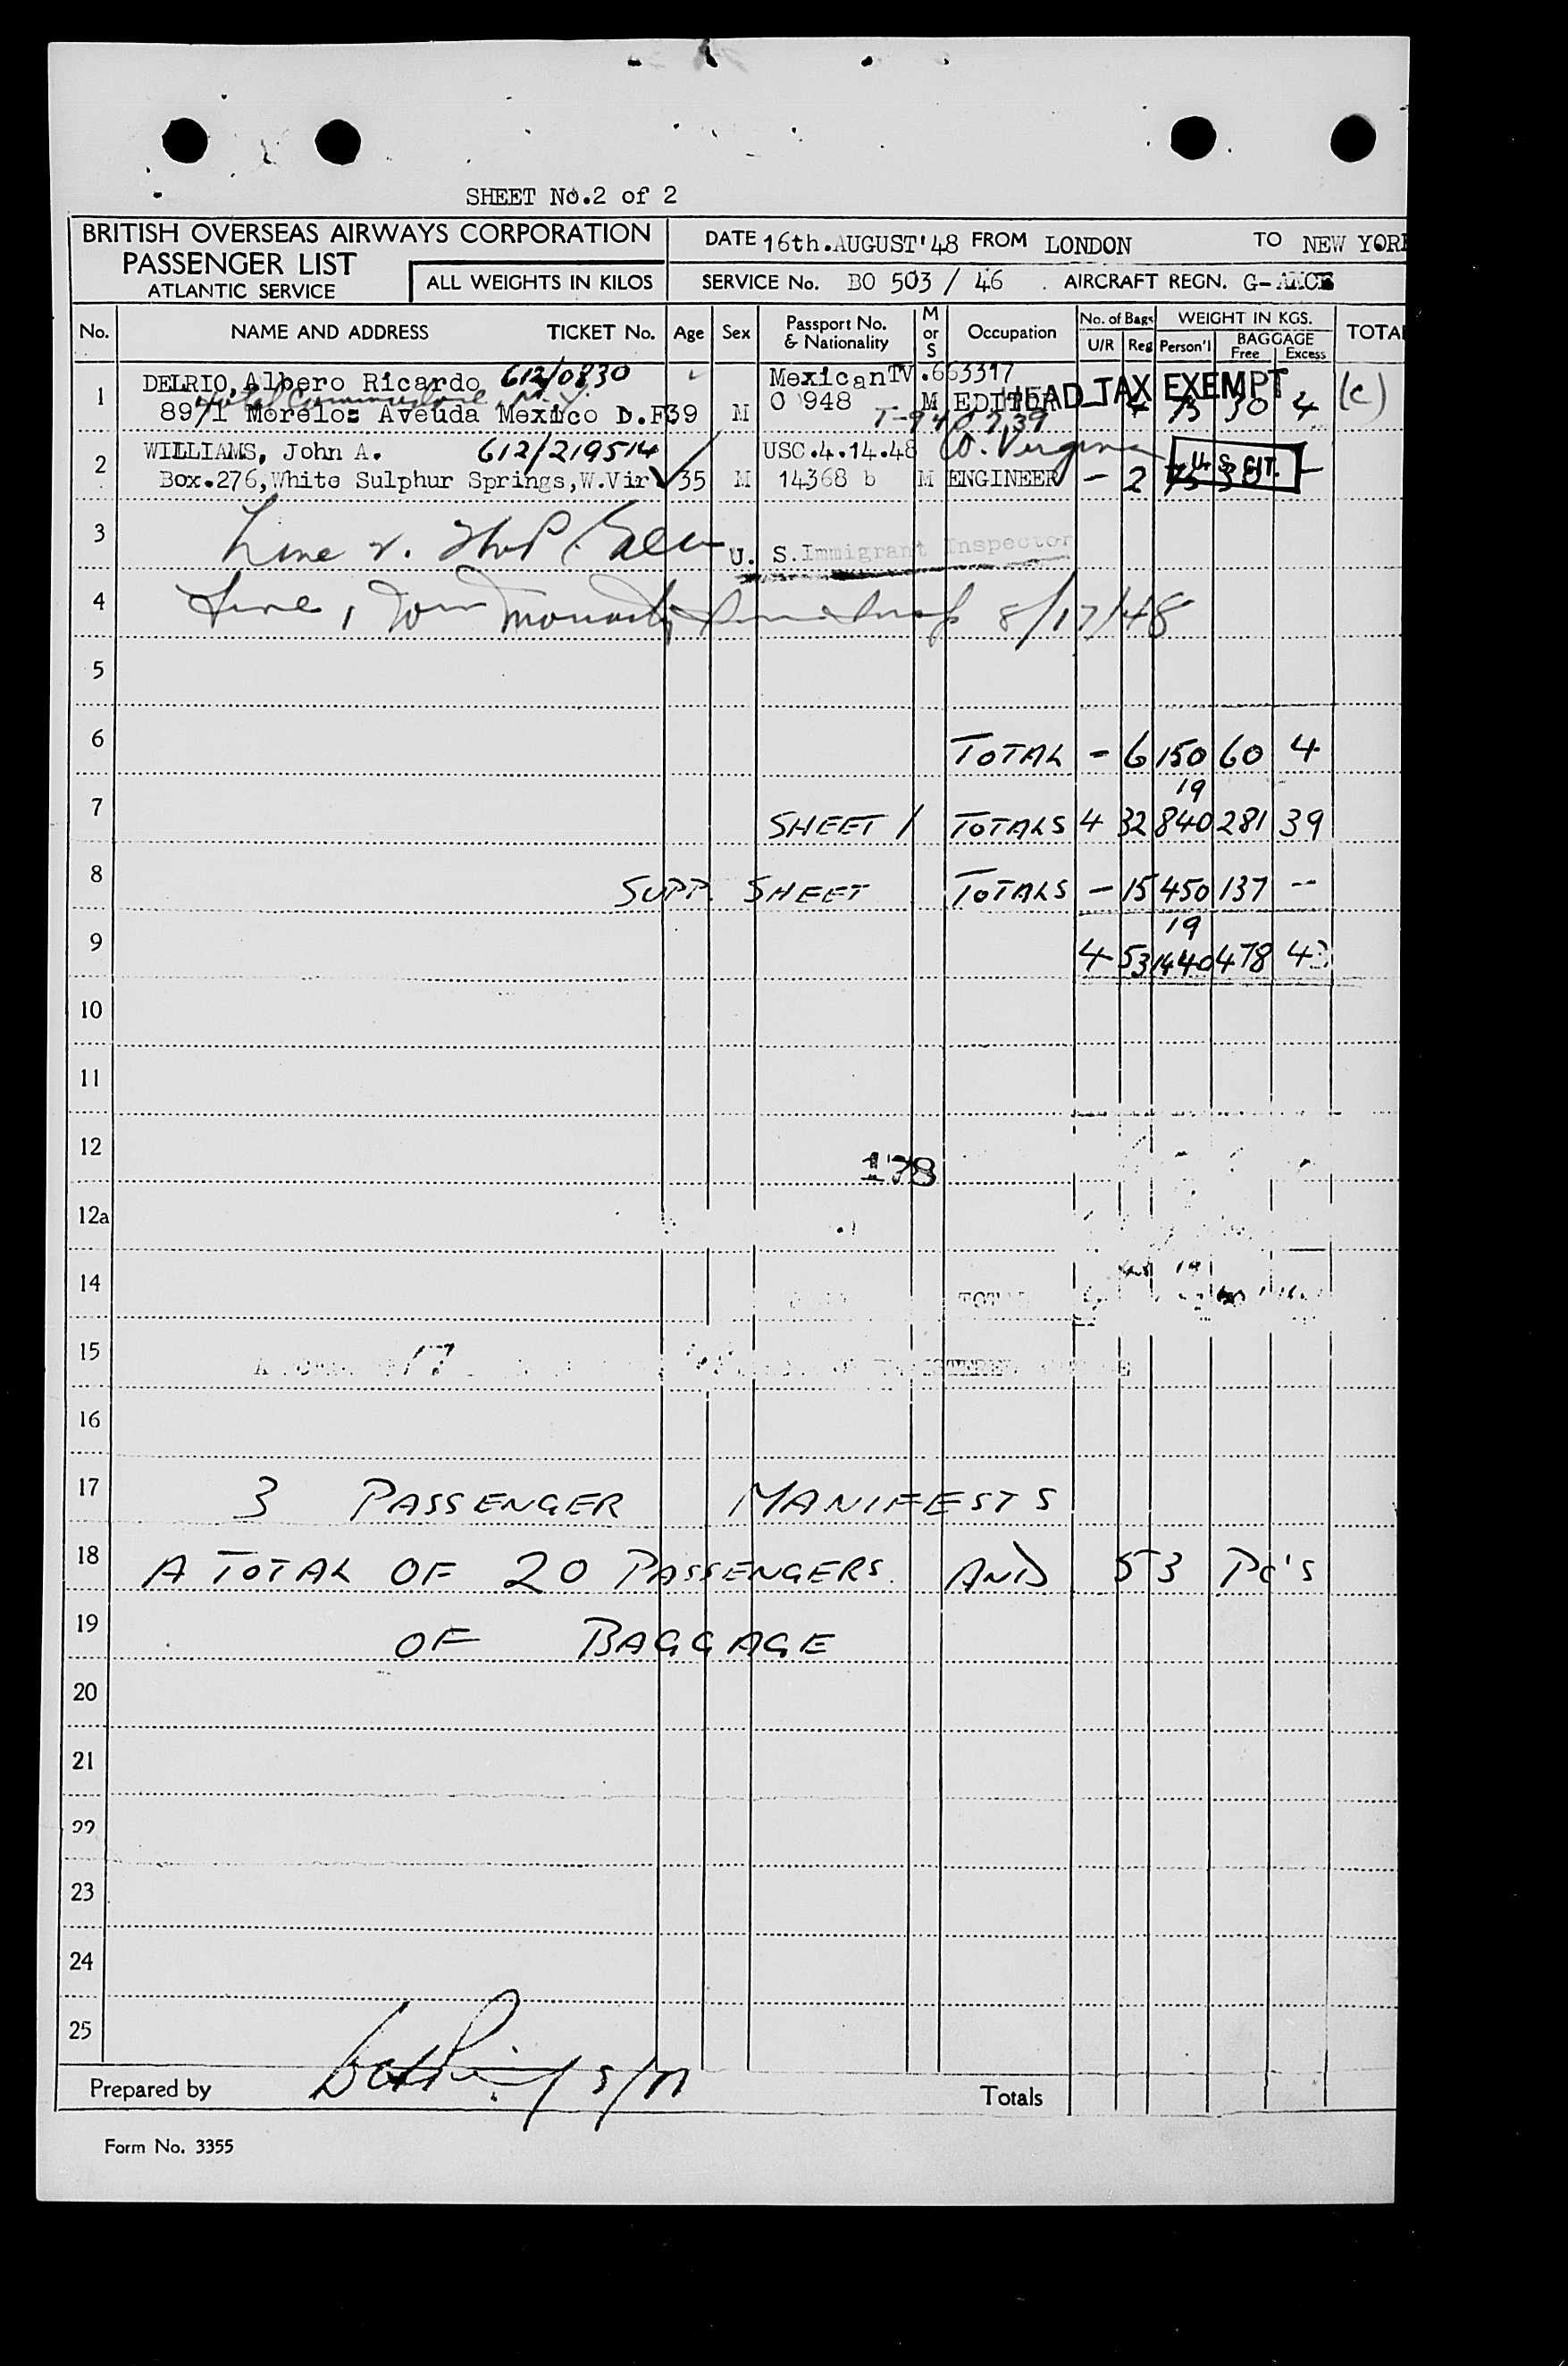 SHEET No.2 of 2
BRITISH OVERSEAS AIRWAYS CORPORATION
PASSENGER LIST
ATLANTIC SERVICE
ALL WEIGHTS IN KILOS
DATE 16th.AUGUST'48 FROM LONDON TO NEW YOR
SERVICE No. BO 503 / 46 . AIRCRAFT REGN. G-
No. NAME AND ADDRESS TICKET No. Age Sex Passport No. & Nationality M or S Occupation No. of Bags U/R Reg WEIGHT IN KGS. Person'l BAGGAGE Free Excess TOTA
1 DELRIO, Albero Ricardo 612/0830 MexicanTV.663317 HEAD TAX EXEMPT (c)
Hotel Commodore, N.Y.
89/1 Morelos Aveuda Mexico D.F 39 M O 948 M EDITOR - 4 75 30 4
2 WILLIAMS, John A. 612/219514 USC.4.14.48 W. Virginia
Box.276,White Sulphur Springs,W.Vir 35 M 14368 b M ENGINEER - 2 75 30 - U. S. CIT.
3 Line 2. U. S. Immigrant Inspector
4 Line 1, 8/17/48
5
6 TOTAL - 6 150 60 4
19
7 SHEET 1 TOTALS 4 32 840 281 39
8 SUPP. SHEET TOTALS - 15 450 137 --
19
9 4 53 1440 478 43
10
11
12 178
12a
14
15 17
16
17 3 PASSENGER MANIFESTS
18 A TOTAL OF 20 PASSENGERS. AND 53 Pc's
19 OF BAGGAGE
20
21
22
23
24
25
Prepared by Totals
Form No. 3355